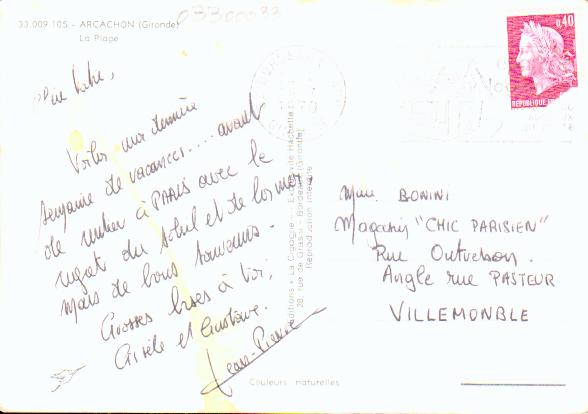 33.009.105 - ARCACHON (Gironde)
La Plage
03300033
0,40
REPUBLIQUE
Voilà ma dernière
semaine de vacances.... avant
de rentrer à PARIS avec le
regret du soleil et de la mer
mais de bons souvenirs.
Grosses bises à toi,
Gisèle et Gustave.
Jean-Pierre
Editions "La Cigogne" - Exclusivité Hachette
28, rue de Grassi - Bordeaux (Gironde)
Reproduction interdite
Mme BONINI
Magasin "CHIC PARISIEN"
Rue Outrebon.
Angle rue PASTEUR
VILLEMONBLE
Couleurs naturelles